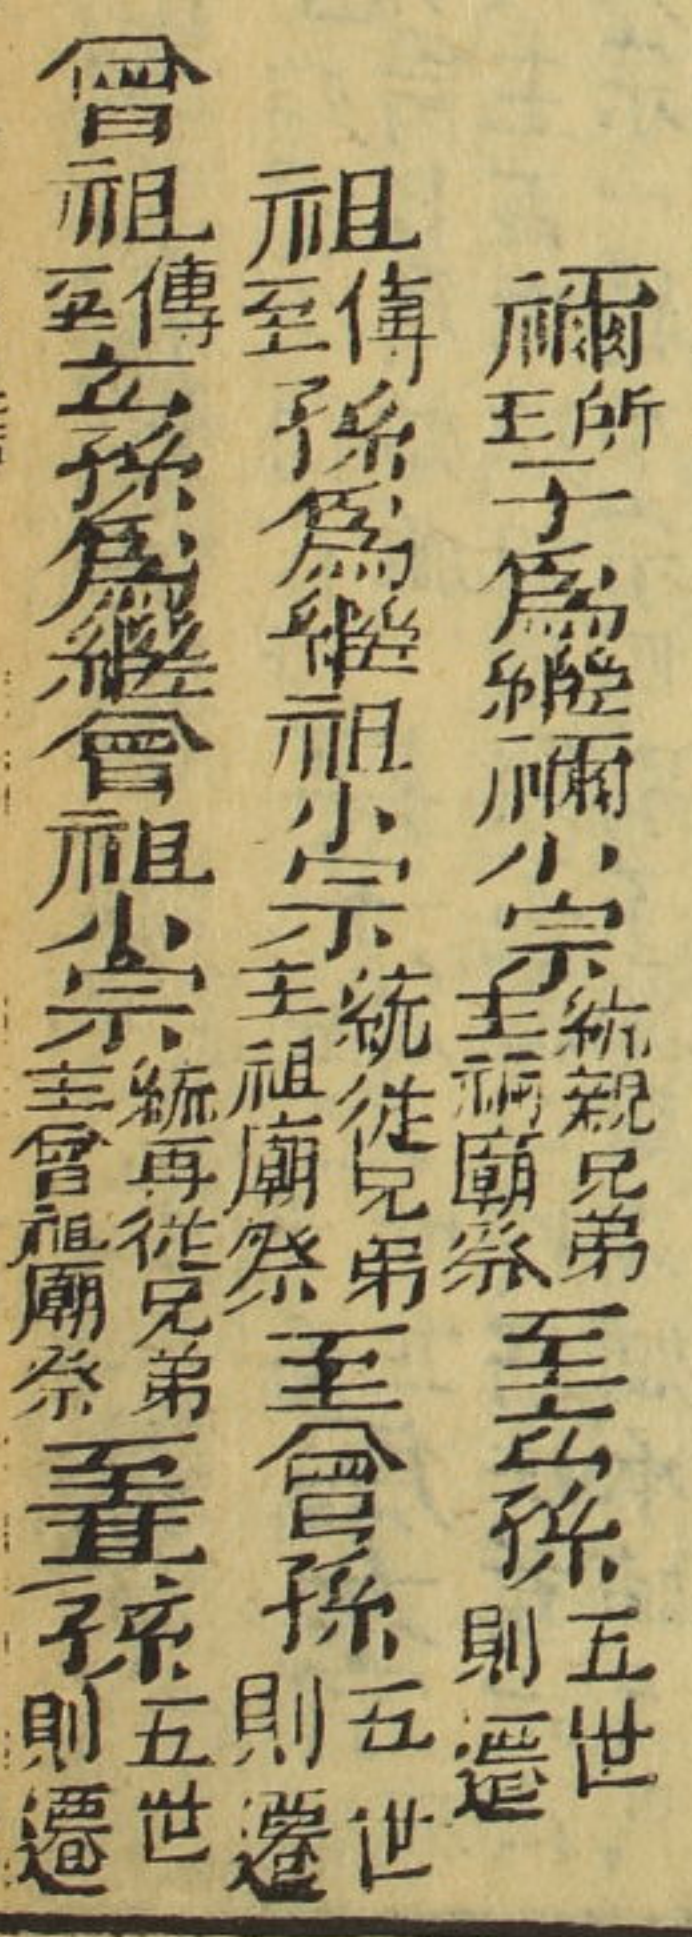 禰所生子為繼禰小宗統親兄弟主禰廟祭至玄孫五世則遷
祖傳至孫為繼祖小宗統從兄弟主祖廟祭至曾孫五世則遷
曾祖傳至玄孫為繼曾祖小宗統再從兄弟主曾祖廟祭至孫五世則遷